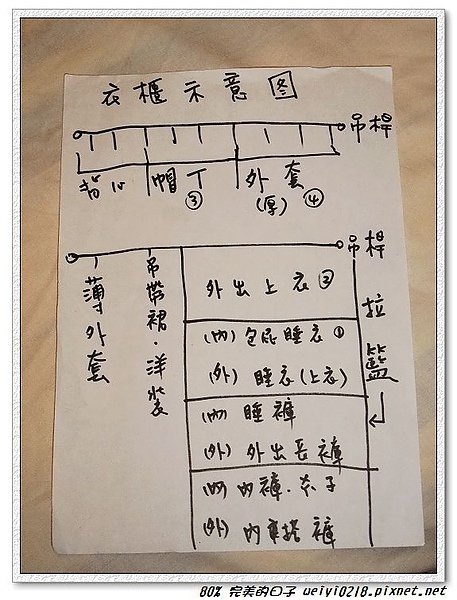 衣櫃示意図
吊桿
背心 帽T ③ 外套 (厚) ④
吊桿
薄外套
吊帶裙·洋裝
外出上衣②
拉籃
(內) 包屁睡衣①
(外) 睡衣(上衣)
(內) 睡褲
(外) 外出長褲
(內) 內褲·
(外) 內搭褲
80% 完美的日子 weiyi0218.pixnet.net